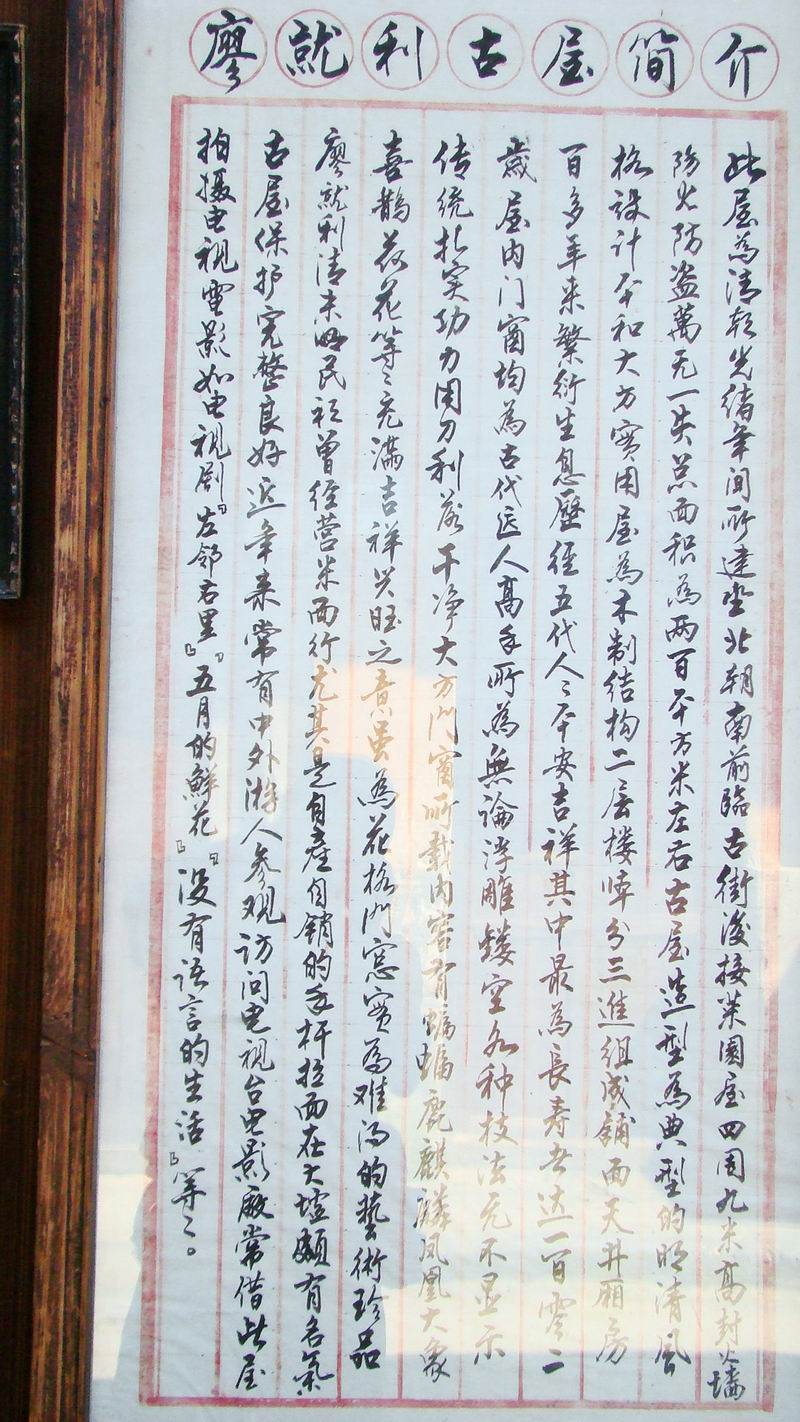 廖就利古屋简介
此屋為清朝光绪年间所建坐北朝南前臨古街後接菜園屋四周九米高封火墙
防火防盗萬无一失总面积為两百平方米左右古屋造型為典型的明清風
格设计平和大方實用屋為木制结构二层楼幢分三進组成鋪面天井厢房
百多年来繁衍生息歷经五代人々平安吉祥其中最為長寿者达一百零二
歲屋内门窗均為古代匠人高手所為無論浮雕镂空各种技法无不显示
传统扎实功力用刀利落干净大方门窗所載内容有蝙蝠鹿麒麟凤凰大象
喜鹊荷花等々充满吉祥兴旺之意虽為花格门窓實為难得的藝術珍品
廖就利清末明民初曾经营米面行尤其是自產自銷的手杆拉面在大墟颇有名氣
古屋保护完整良好近年来常有中外游人参观访问电视台电影厰常借此屋
拍摄电视電影如电视剧『左邻右里』『五月的鲜花』『没有语言的生活』等々。